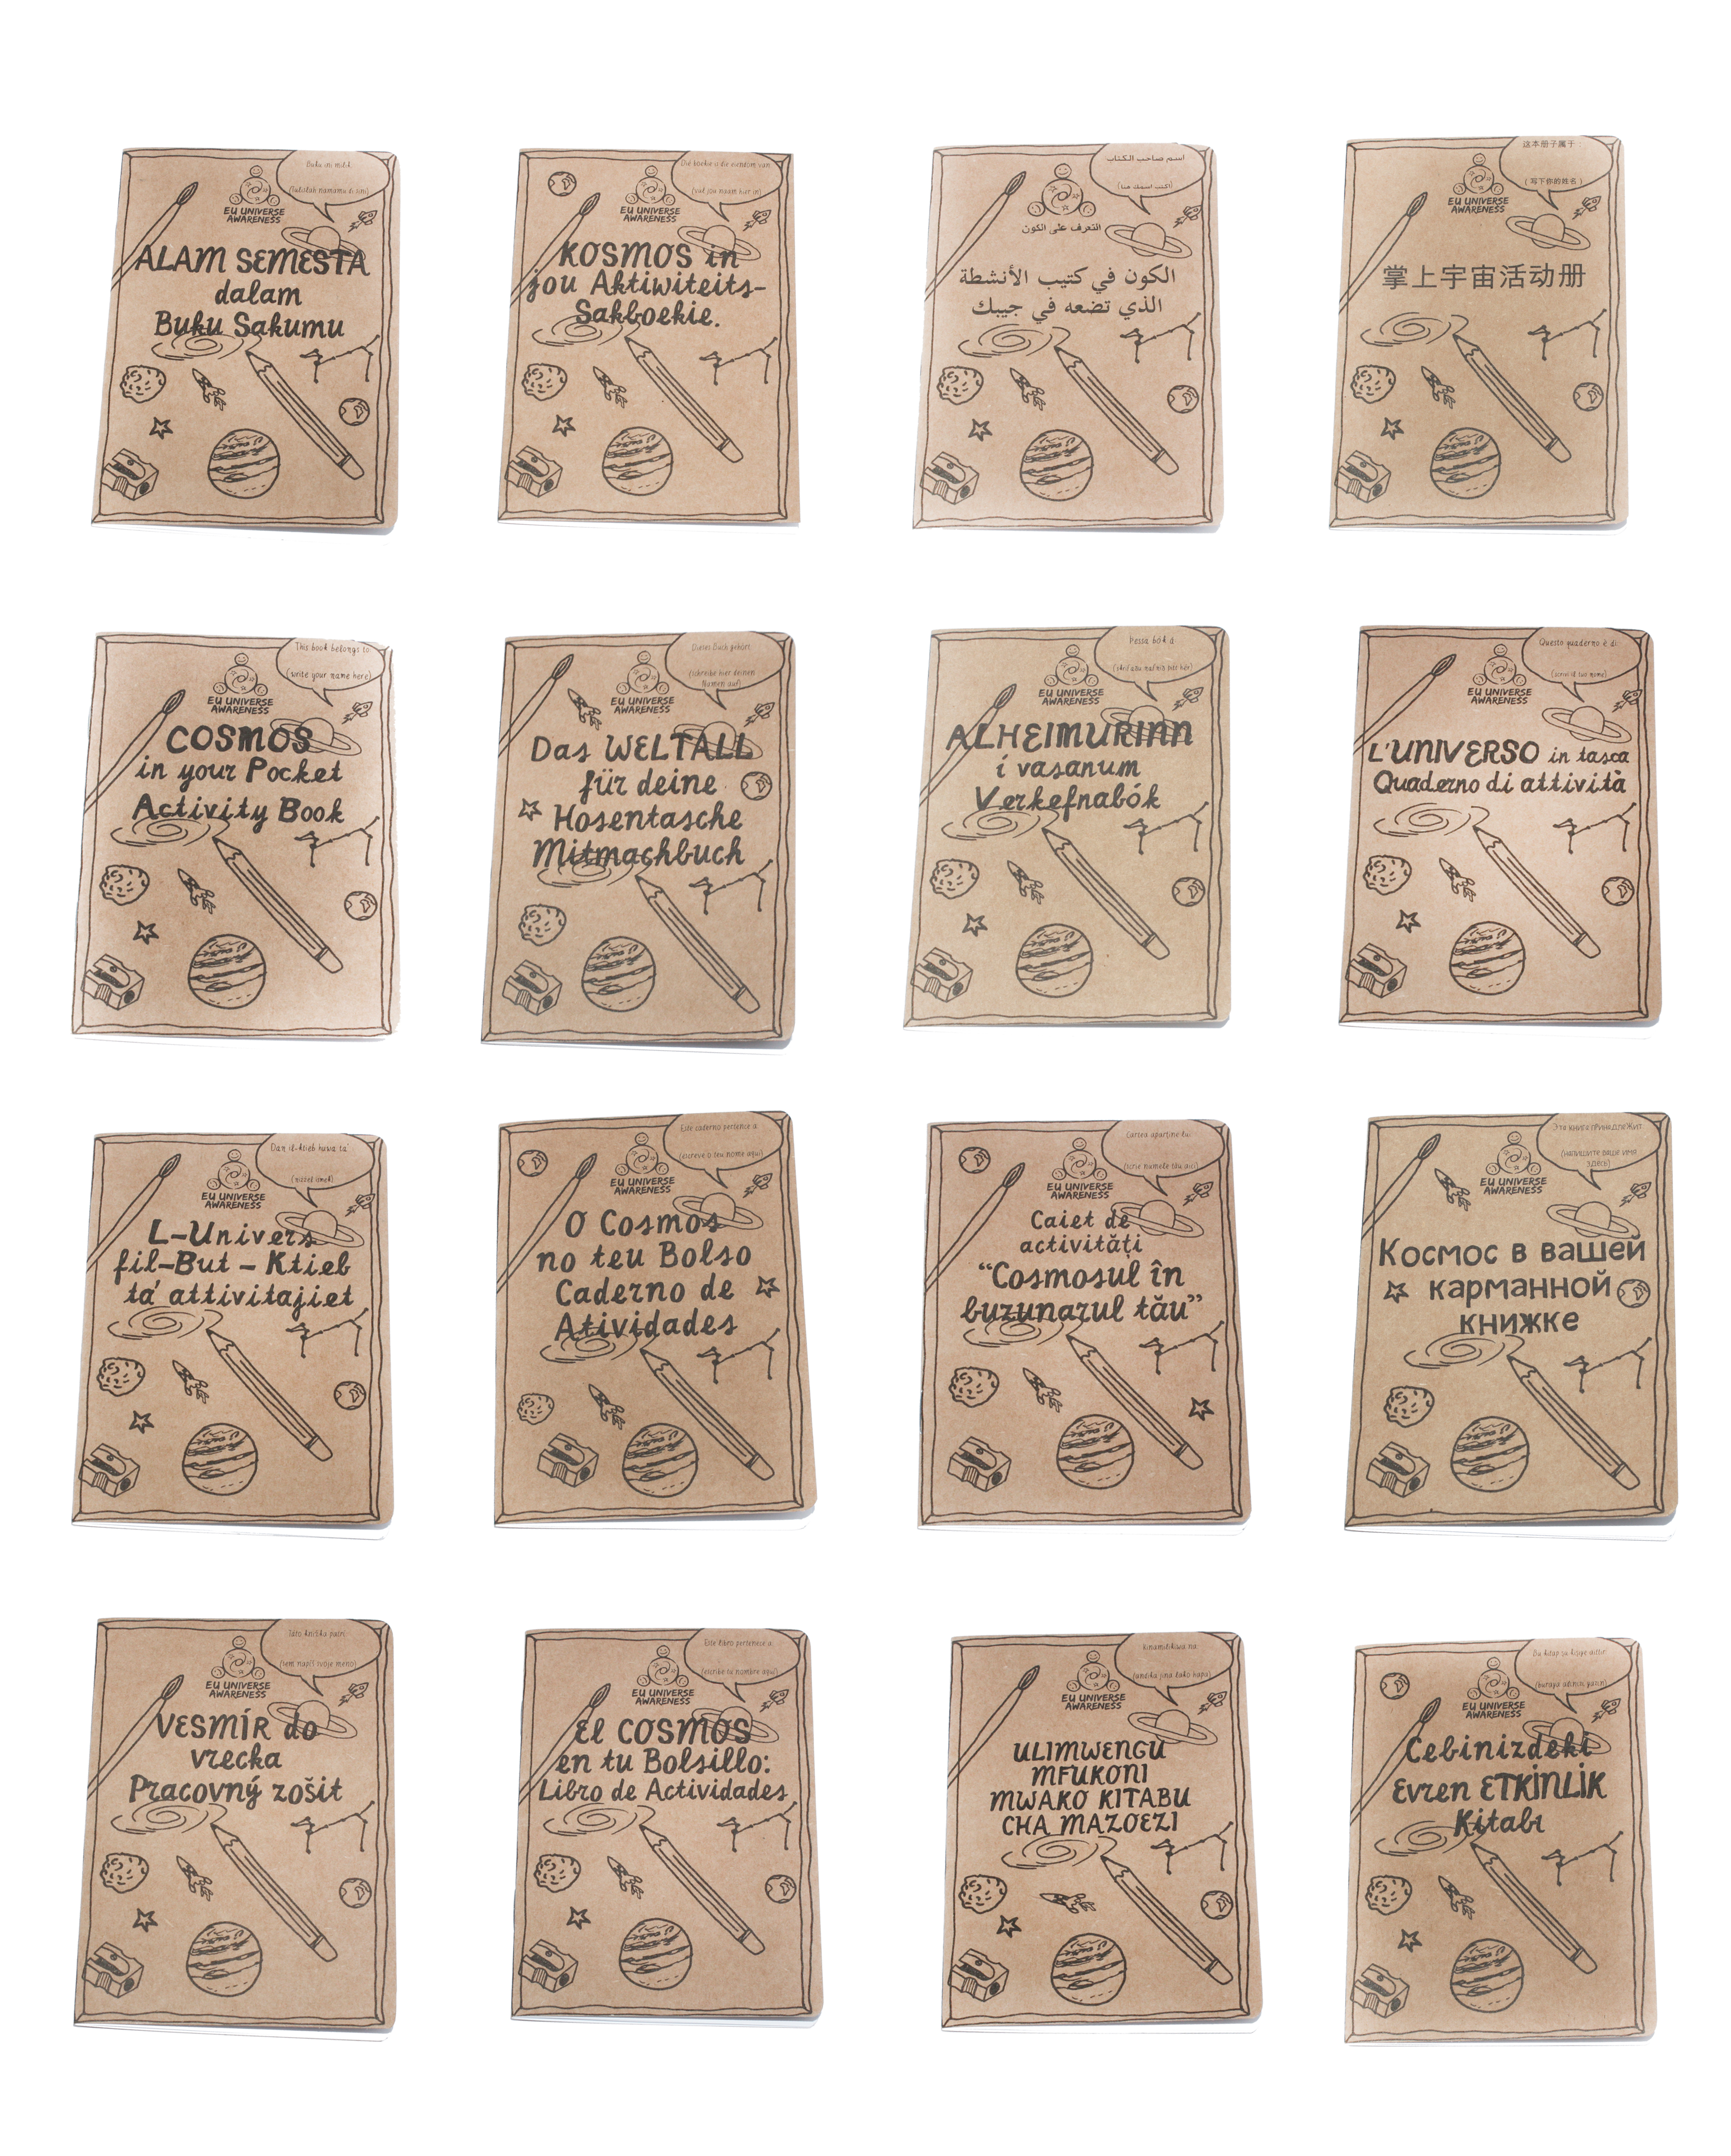 Buku ini milik
(tulislah namamu di sini)
EU UNIVERSE
AWARENESS
ALAM SEMESTA
dalam
Buku Sakumu
Die boekie is die eiendom van
(vul jou naam hier in)
EU UNIVERSE
AWARENESS
KOSMOS in
jou Aktiwiteits-
Sakboekie.
اسم صاحب الكتاب
(اكتب اسمك هنا)
التعرف على الكون
الكون في كتيب الأنشطة
الذي تضعه في جيبك
这本册子属于:
(写下你的姓名)
EU UNIVERSE
AWARENESS
掌上宇宙活动册
This book belongs to:
(write your name here)
EU UNIVERSE
AWARENESS
COSMOS
in your Pocket
Activity Book
Dieses Buch gehört
(schreibe hier deinen
Namen auf)
EU UNIVERSE
AWARENESS
Das WELTALL
für deine
Hosentasche
Mitmachbuch
Þessa bók á
EU UNIVERSE
AWARENESS
ALHEIMURINN
í vasanum
Verkefnabók
Questo quaderno è di:
(scrivi il tuo nome)
EU UNIVERSE
AWARENESS
L'UNIVERSO in tasca
Quaderno di attività
Dan il-ktieb huwa ta'
EU UNIVERSE
AWARENESS
L-Univers
fil-But - Ktieb
ta' attivitajiet
Este caderno pertence a:
(escreve o teu nome aqui)
EU UNIVERSE
AWARENESS
O Cosmos
no teu Bolso
Caderno de
Atividades
Cartea aparține lui:
(scrie numele tău aici)
EU UNIVERSE
AWARENESS
Caiet de
activități
“Cosmosul în
buzunarul tău”
Эта книга принадлежит
(напишите ваше имя
здесь)
EU UNIVERSE
AWARENESS
Космос в вашей
карманной
книжке
Táto knižka patrí:
(sem napíš svoje meno)
EU UNIVERSE
AWARENESS
VESMÍR do
vrecka
Pracovný zošit
Este libro pertenece a:
(escribe tu nombre aquí)
EU UNIVERSE
AWARENESS
El COSMOS
en tu Bolsillo:
Libro de Actividades
Kinamilikiwa na:
(andika jina lako hapa)
EU UNIVERSE
AWARENESS
ULIMWENGU
MFUKONI
MWAKO KITABU
CHA MAZOEZI
Bu kitap şu kişiye aittir:
(buraya adınızı yazın)
EU UNIVERSE
AWARENESS
Cebinizdeki
Evren ETKİNLİK
Kitabı